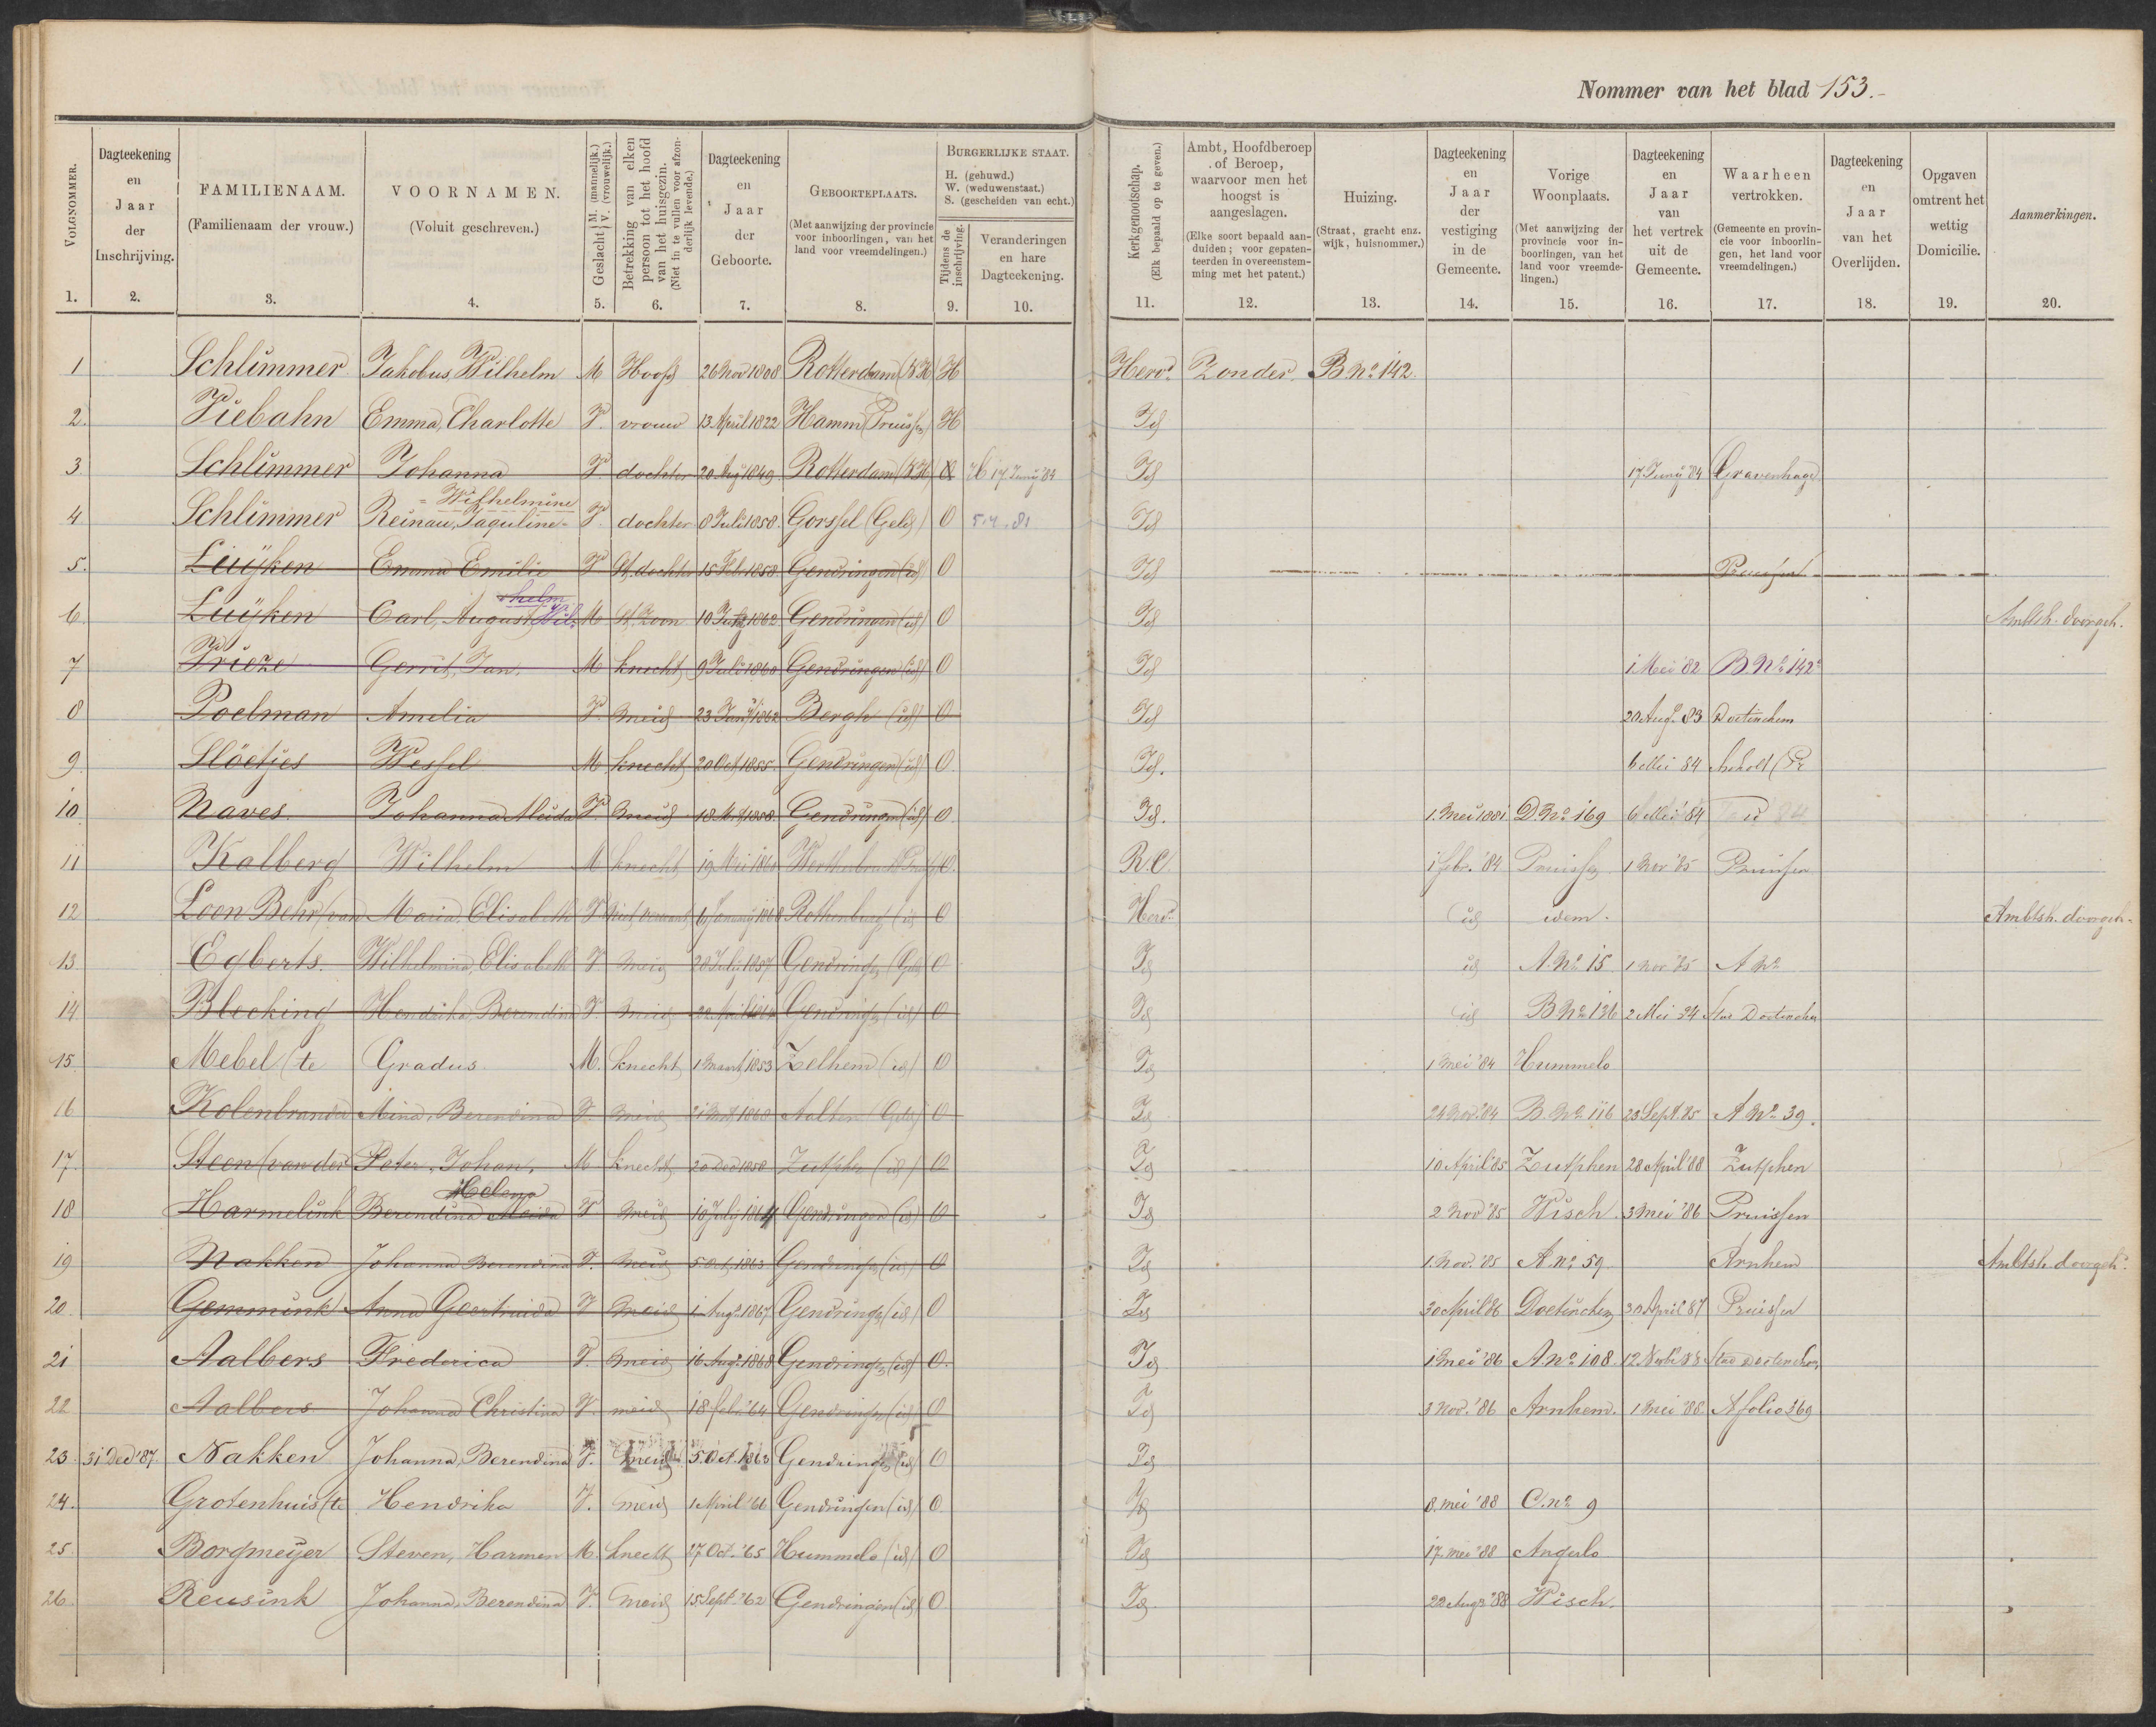 Nommer van het blad 153.-
VOLGNOMMER. 1.
Dagteekening en Jaar der Inschrijving. 2.
FAMILIENAAM. (Familienaam der vrouw.) 3.
VOORNAMEN. (Voluit geschreven.) 4.
Geslacht M. (mannelijk.) V. (vrouwelijk.) 5.
Betrekking van elken persoon tot het hoofd van het huisgezin. (Niet in te vullen voor afzonderlijk levende.) 6.
Dagteekening en Jaar der Geboorte. 7.
GEBOORTEPLAATS. (Met aanwijzing der provincie voor inboorlingen, van het land voor vreemdelingen.) 8.
BURGERLIJKE STAAT. H. (gehuwd.) W. (weduwenstaat.) S. (gescheiden van echt.)
Tijdens de inschrijving. 9.
Veranderingen en hare Dagteekening. 10.
Kerkgenootschap. (Elk bepaald op te geven.) 11.
Ambt, Hoofdberoep of Beroep, waarvoor men het hoogst is aangeslagen. (Elke soort bepaald aanduiden; voor gepatenteerden in overeenstemming met het patent.) 12.
Huizing. (Straat, gracht enz. wijk, huisnommer.) 13.
Dagteekening en Jaar der vestiging in de Gemeente. 14.
Vorige Woonplaats. (Met aanwijzing der provincie voor inboorlingen, van het land voor vreemdelingen.) 15.
Dagteekening en Jaar van het vertrek uit de Gemeente. 16.
Waarheen vertrokken. (Gemeente en provincie voor inboorlingen, het land voor vreemdelingen.) 17.
Dagteekening en Jaar van het Overlijden. 18.
Opgaven omtrent het wettig Domicilie. 19.
Aanmerkingen. 20.
1 Schlimmer Jakobus, Wilhelm M Hoofd 26 Nov 1808 Rotterdam (ZH) H Herv. Zonder. B No. 142.
2. Viebahn Emma, Charlotte V. vrouw 13 April 1822 Hamm (Pruissen) H Id
3. Schlimmer Johanna V. dochter 20 Aug 1849 Rotterdam (ZH) H 17 Juny '84 Id 17 Juny '84 Gravenhage
4 Schlimmer Reinau, Jaquline = Wilhelmine V. dochter 8 Juli 1858. Gorssel (Geld) O Id
5. Luijken Emma Emilie V St. dochter 15 Feb. 1858 Gendringen (id) O Id Pruissen
6. Luijken Carl, August, Wilhelm M St. Zoon 10 1862 Gendringen (id) O Id Ambtsh. doorgeh.
7 Prieze Gerrit, Jan, M knecht 9 Juli 1860 Gendringen (id) O Id 1 Mei '82 B. No. 142
8 Poelman Amelia V. meid 23 Jany 1862 Bergh (id) O Id 20 Aug. 83 Doetinchem
9. Slöetjes Wessel M knecht 20 Oct 1855. Gendringen (id) O. Id. 6 Mei 84 Anholt (Pr
10 Naves. Johanna Aleida V. meid 18 1858. Gendringen (id) O. Id. 1. Mei 1881 D. No. 169 6 Mei '84
11 Kalberg Wilhelm M knecht 19 Mei 1860 O. R.C. 1 febr. '84 Pruissen 1 Nov '85 Pruissen
12 Loon Behr (van Maria, Elisabeth V O Herv. id idem. Ambtsh. doorgeh.
13. Egberts. Wilhelmina, Elisabeth V meid 20 July 1857 Gendringen (Geld) O Id id A. No. 15 1 Nov '85 A No.
14. Blecking Hendrika, Berendina V meid Gendringen (id) O Id id B No. 136 2 Mei 84 Stad Doetinchem
15. Mebel (te Gradus. M. knecht 1 Maart 1853 Zelhem (id) O Id 1 Mei '84 Hummelo
16 Kolenbrander Mina, Berendina V. meid 1860 Aalten (Geld) O Id 24 Nov. '84 B. No. 116 23 Sept. 85 A No. 39.
17. Steen (van der Peter, Johan, M knecht 20 Dec 1850 Zutphen (id) O Id 10 April '85 Zutphen 28 April '88 Zutphen
18 Harmelink Berendina Aleida Helena V meid 10 July 1864 Gendringen (id) O Id 2 Nov '85 Wisch 3 Mei '86 Pruissen
19 Nakken Johanna Berendina V. meid 5 Oct, 1863 Gendringen (id) O Id 1. Nov. '85 A. No. 59 Arnhem Ambtsh. doorgeh.
20. Gemmink Anna Geertruida V meid 1 Aug. 1867 Gendringen (id) O Id 30 April '86 Doetinchem 30 April 87 Pruissen
21 Aalbers Frederica V. meid 16 Aug. 1868 Gendringen (id) O. Id 1 Mei '86 A. No. 108. 12 88 Stad Doetinchem
22 Aalbers Johanna Christina V. meid 18 feb. '64 Gendringen (id) O Id 3 Nov. '86 Arnhem. 1 Mei '88. A folio 369
23. 31 Dec '87. Nakken Johanna, Berendina V. meid 5. Oct. 1863 Gendringen (id) O Id
24. Grotenhuis (te Hendrika V. meid 1 April '66 Gendringen (id) O. Id 8. Mei '88 C. No. 9
25. Borgmeijer Steven, Harmen M. knecht 27 Oct. '65 Hummelo (id) O Id 17. Mei '88 Angerlo
26. Reusink Johanna, Berendina V. meid 15 Sept. '62 Gendringen (id) O. Id. 22 Aug. '88 Wisch.